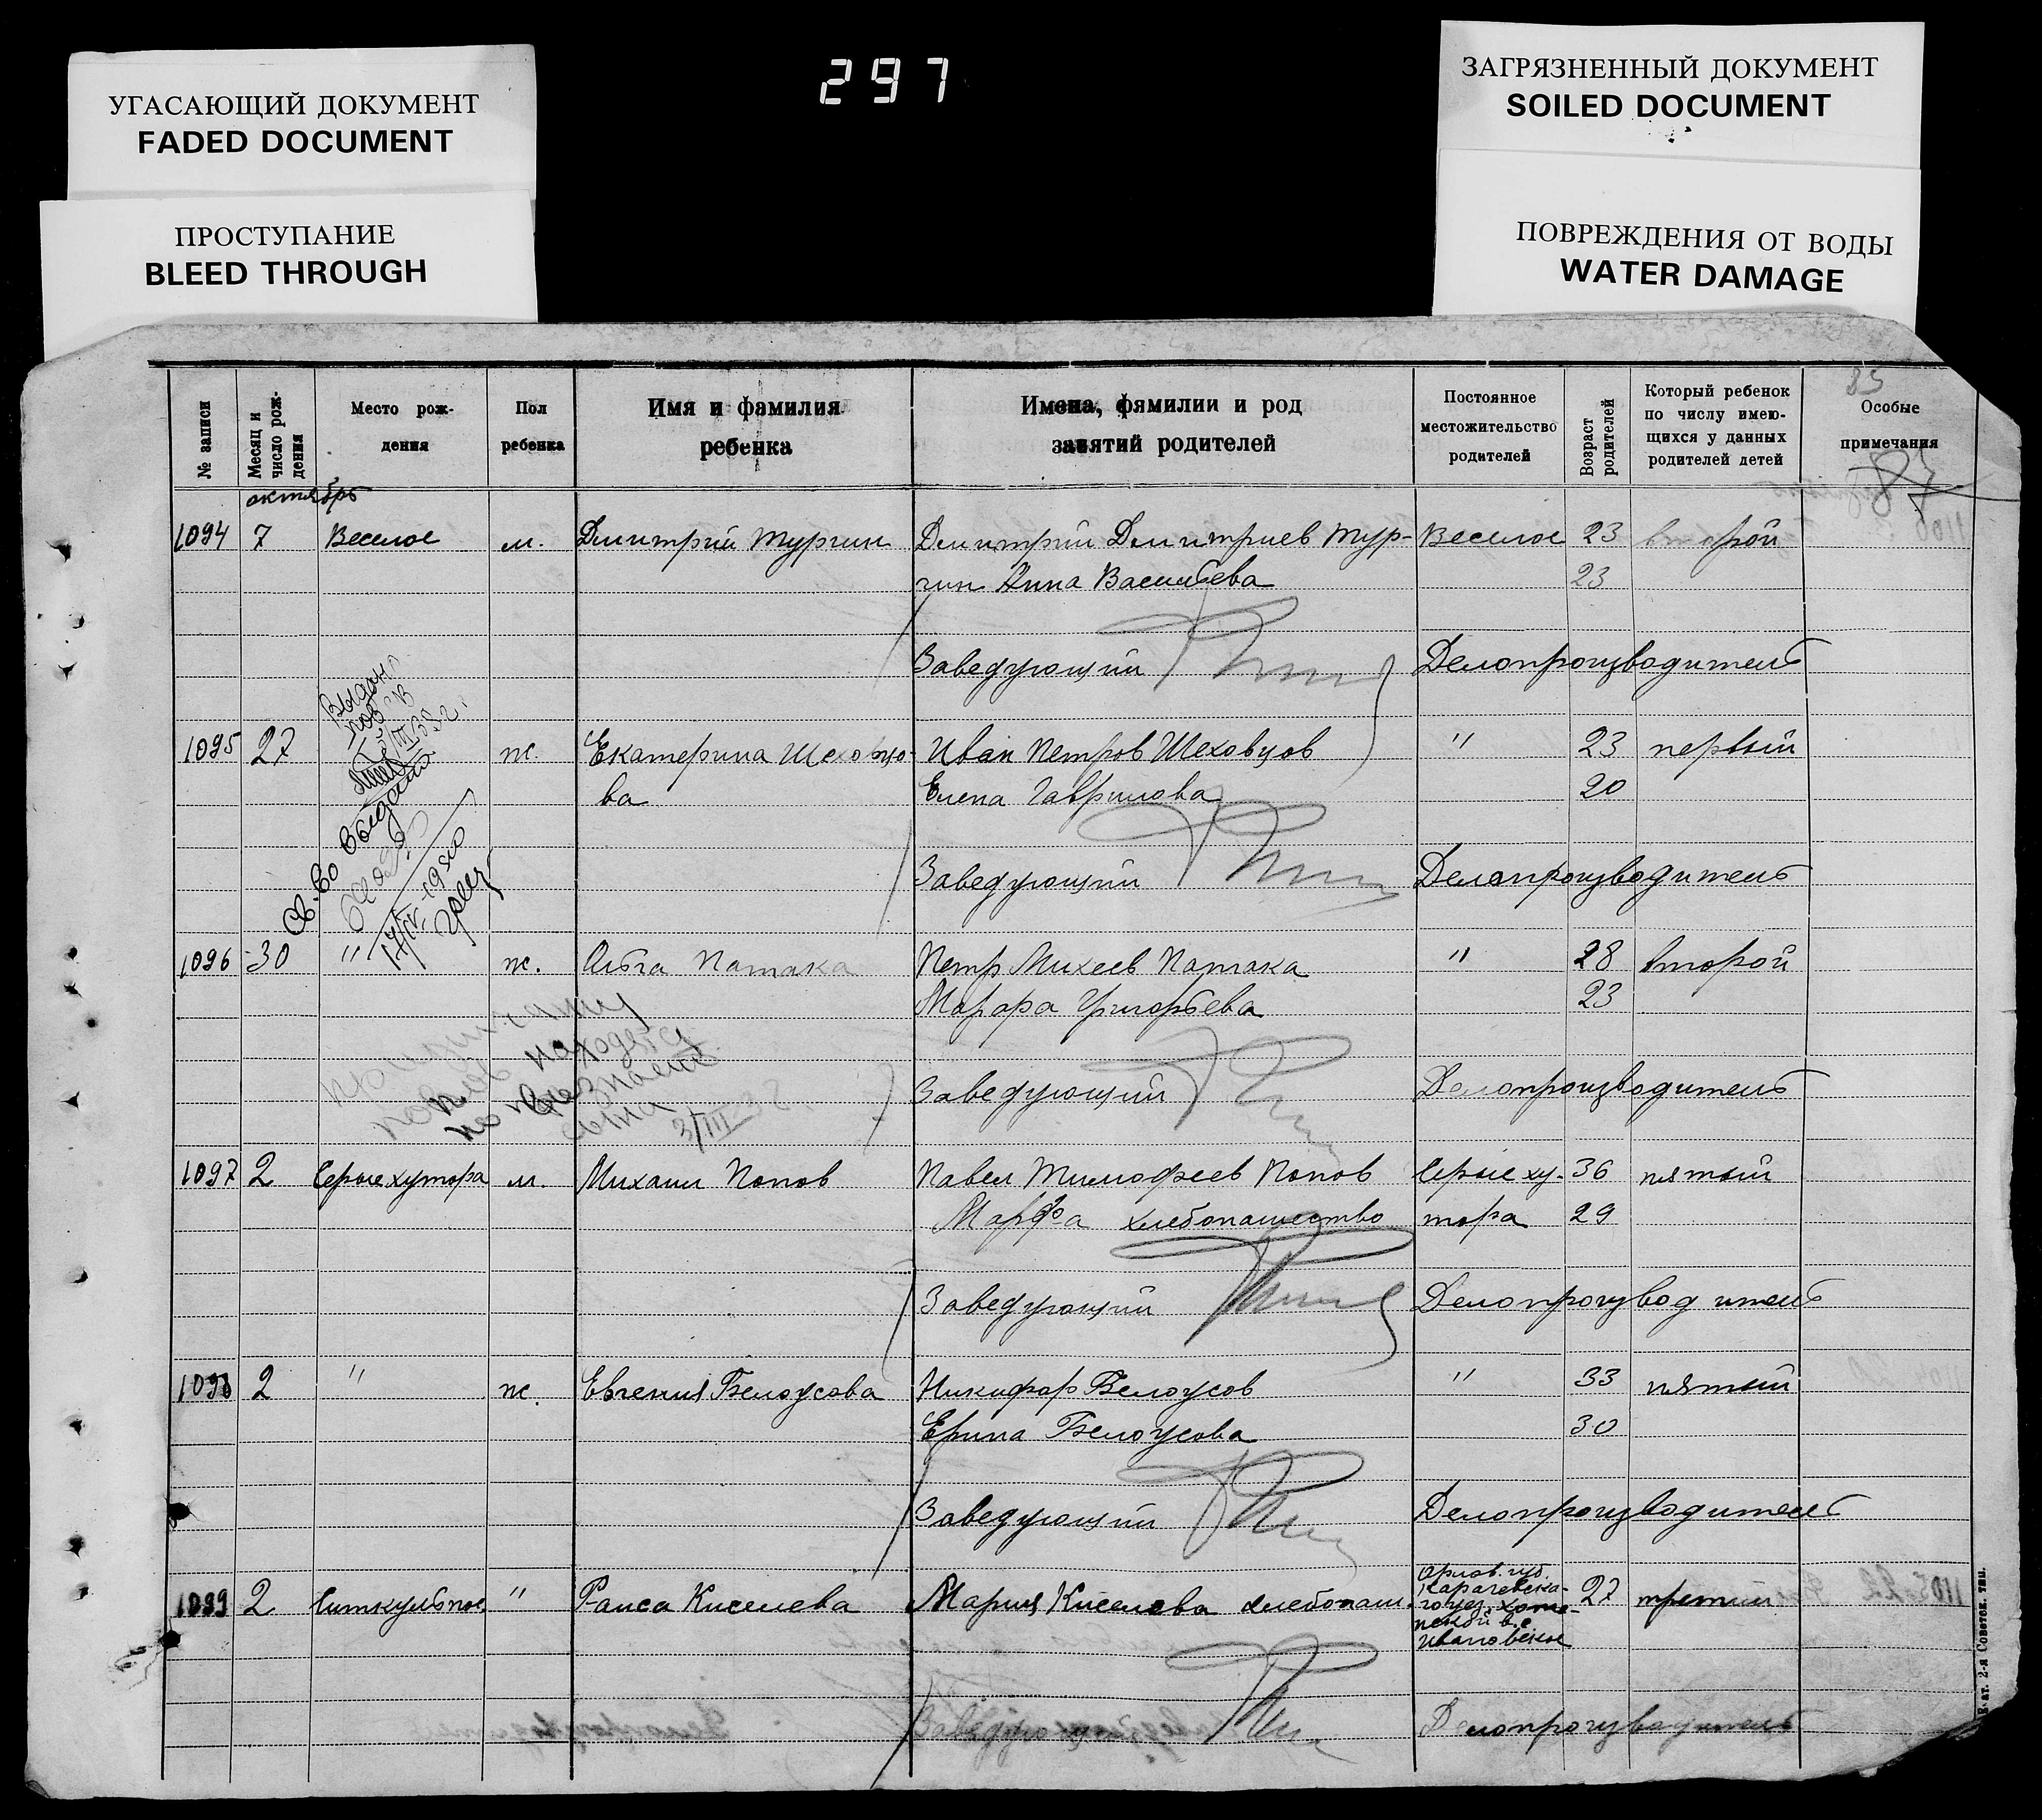 297
УГАСАЮЩИЙ ДОКУМЕНТ
FADED DOCUMENT
ПРОСТУПАНИЕ
BLEED THROUGH
ЗАГРЯЗНЕННЫЙ ДОКУМЕНТ
SOILED DOCUMENT
ПОВРЕЖДЕНИЯ ОТ ВОДЫ
WATER DAMAGE
85
87
№ записи
Месяц и число рождения
Место рож-
дения
Пол
ребенка
Имя и фамилия
ребенка
Имена, фямилии и род
занятий родителей
Постоянное
местожительство
родителей
Возраст
родителей
Который ребенок
по числу имею-
щихся у данных
родителей детей
Особые
примечания
октябрь
1094 7 Веселое м. Дмитрий Тургин Дмитрий Дмитриев Тур- Веселое 23 второй
гин Анна Васильева 23
Заведующий Делопроизводитель
Выдано
1095 27 ж. Екатерина Шеховцо- Иван Петров Шеховцов " 23 первый
ва Елена Гаврилова 20
Св.во выдано
17/IV-1950
Заведующий Делопроизводитель
1096 30 " ж. Ольга Патака Петр Михеев Патака " 28 второй
Григорьева 23
находятся
3/III
Заведующий Делопроизводитель
1097 2 Серые хутора м. Михаил Попов Павел Тимофеев Попов Серые ху- 36 пятый
Марфа хлебопашество тора 29
Заведующий Делопроизводитель
1098 2 " ж. Евгения Белоусова Никифор Белоусов " 33 пятый
Ерина Белоусова 30
Заведующий Делопроизводитель
1099 2 Ситкульное " Раиса Киселева Мария Киселева хлебопаш. 27 третий
Орлов. губ.
Карачевска-
го уез.
Ивановское
Заведующий Делопроизводитель
2-я Советск. тип.